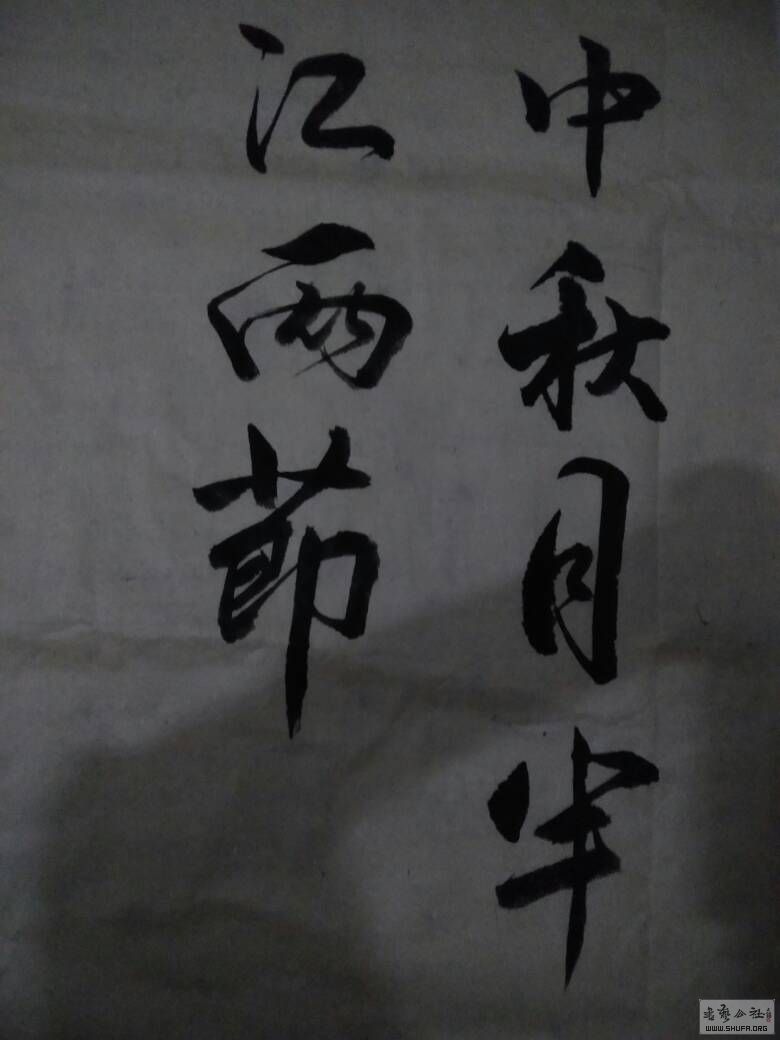 中秋月半
江两節
書藝公社
WWW.SHUFA.ORG